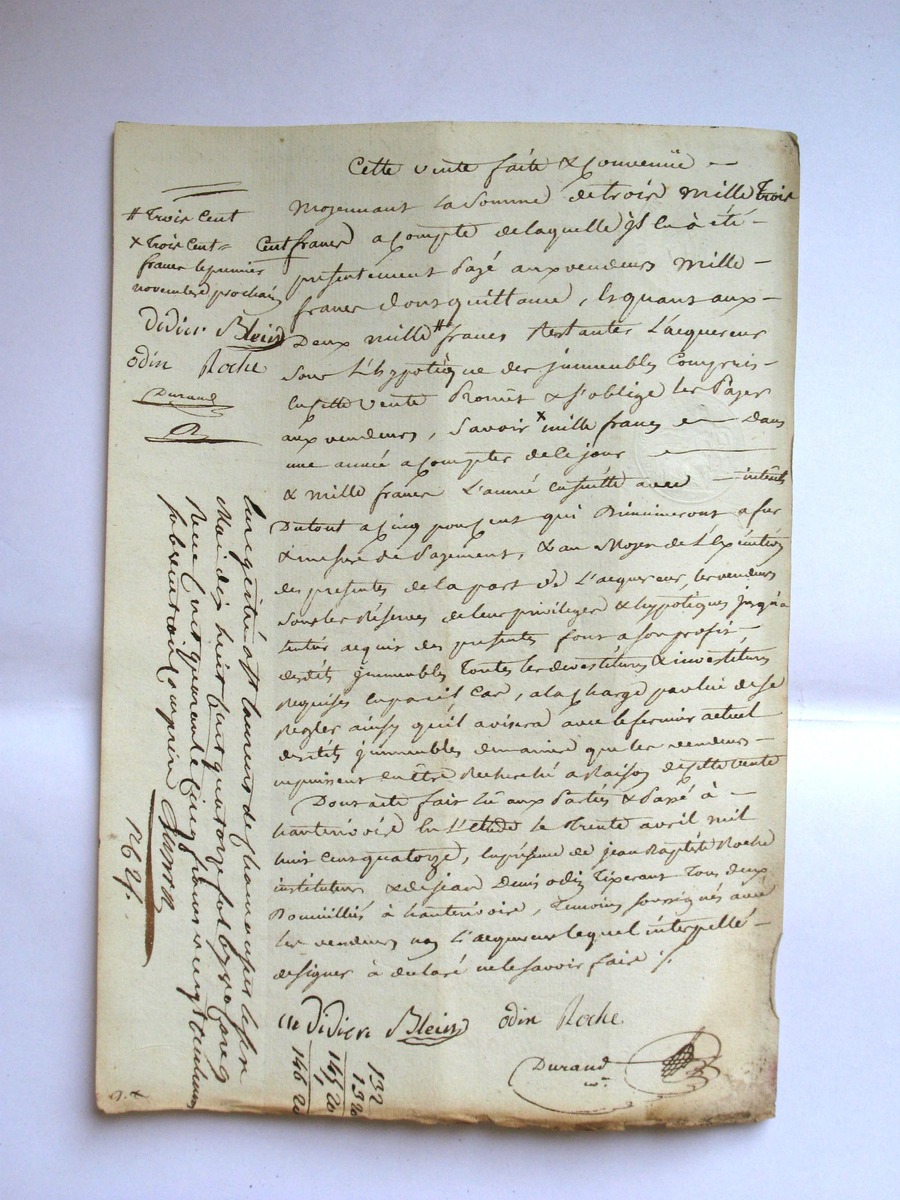 Cette vente faite & Convenüe —
Moyennant la Somme de trois mille trois
Cent francs a Compte de laquelle jl en à été —
présentement Payé aux vendeurs mille —
francs dont quittance, & quant aux —
Deux mille # francs restantes L'acquereur
Sous L'hypotèque des jmmeubles Compris
en cette vente Promet & s'oblige les Payer
aux vendeurs, Savoir x mille francs dans
une année a Compter de ce jour
& mille francs L'année ensuitte avec — intérêts
Du tout a Cinq pour Cent qui Diminueront a fur
& mesure de Payement, & au Moyen de L'Exécution
des presentes de la part de L'acquereur, les vendeurs
sous les Réserves de leur privileges & hypotèques jusqu'a
entier acquit des presentes font a son profit —
desdits jmmeubles Toutes les devestitures & investitures
Requises en pareil Cas, a la Charge par lui de se
Regler ainsy qu'il avisera avec le fermier actuel
desdits jmmeubles de maniere que les vendeurs —
ne puissent en être Recherché a Raison de cette vente
Dont acte fait lû aux Parties & Passé à —
hauterivoire En L'étude le trente avril mil
huit Cent quatorze, En présence de jean Baptiste Roche
instituteur & de jean denis odin Tixerant Tous deux
Domiciliés à hauterivoire, Temoins soussignés avec
les vendeurs non L'acquereur lequel interpellé —
de signer à déclaré ne le savoir faire ./.
Didier Blein odin Roche
Durand
# Trois Cent
x Trois Cent =
francs le premier
novembre prochain
Didier Blein
odin Roche
Durand
Enregistré a St laurent de Chamousset le six
Mai dix huit Cent quatorze fol 67 Ro Case 9
Reçu Cent quarante Cinq francs vingt Centimes
subvention Comprise
132
13 20
145, 20
146 20